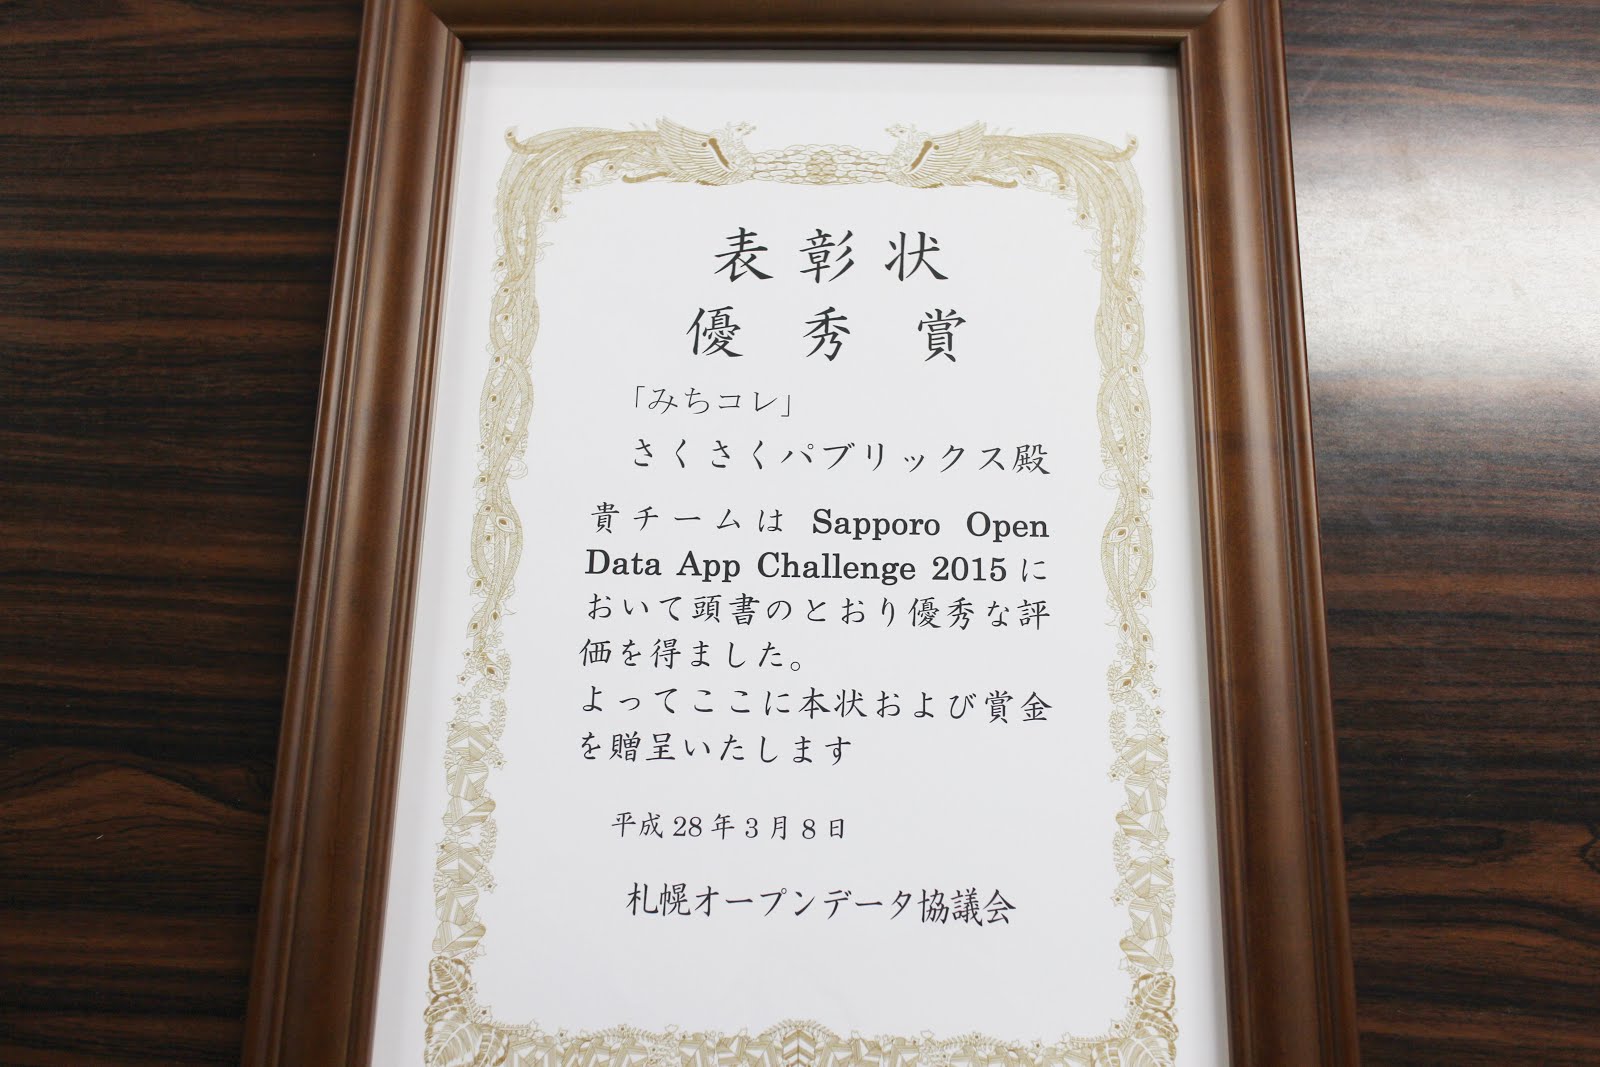 表彰状
優秀賞
「みちコレ」
さくさくパブリックス殿
貴チームは Sapporo Open
Data App Challenge 2015 に
おいて頭書のとおり優秀な評
価を得ました。
よってここに本状および賞金
を贈呈いたします
平成 28 年 3 月 8 日
札幌オープンデータ協議会